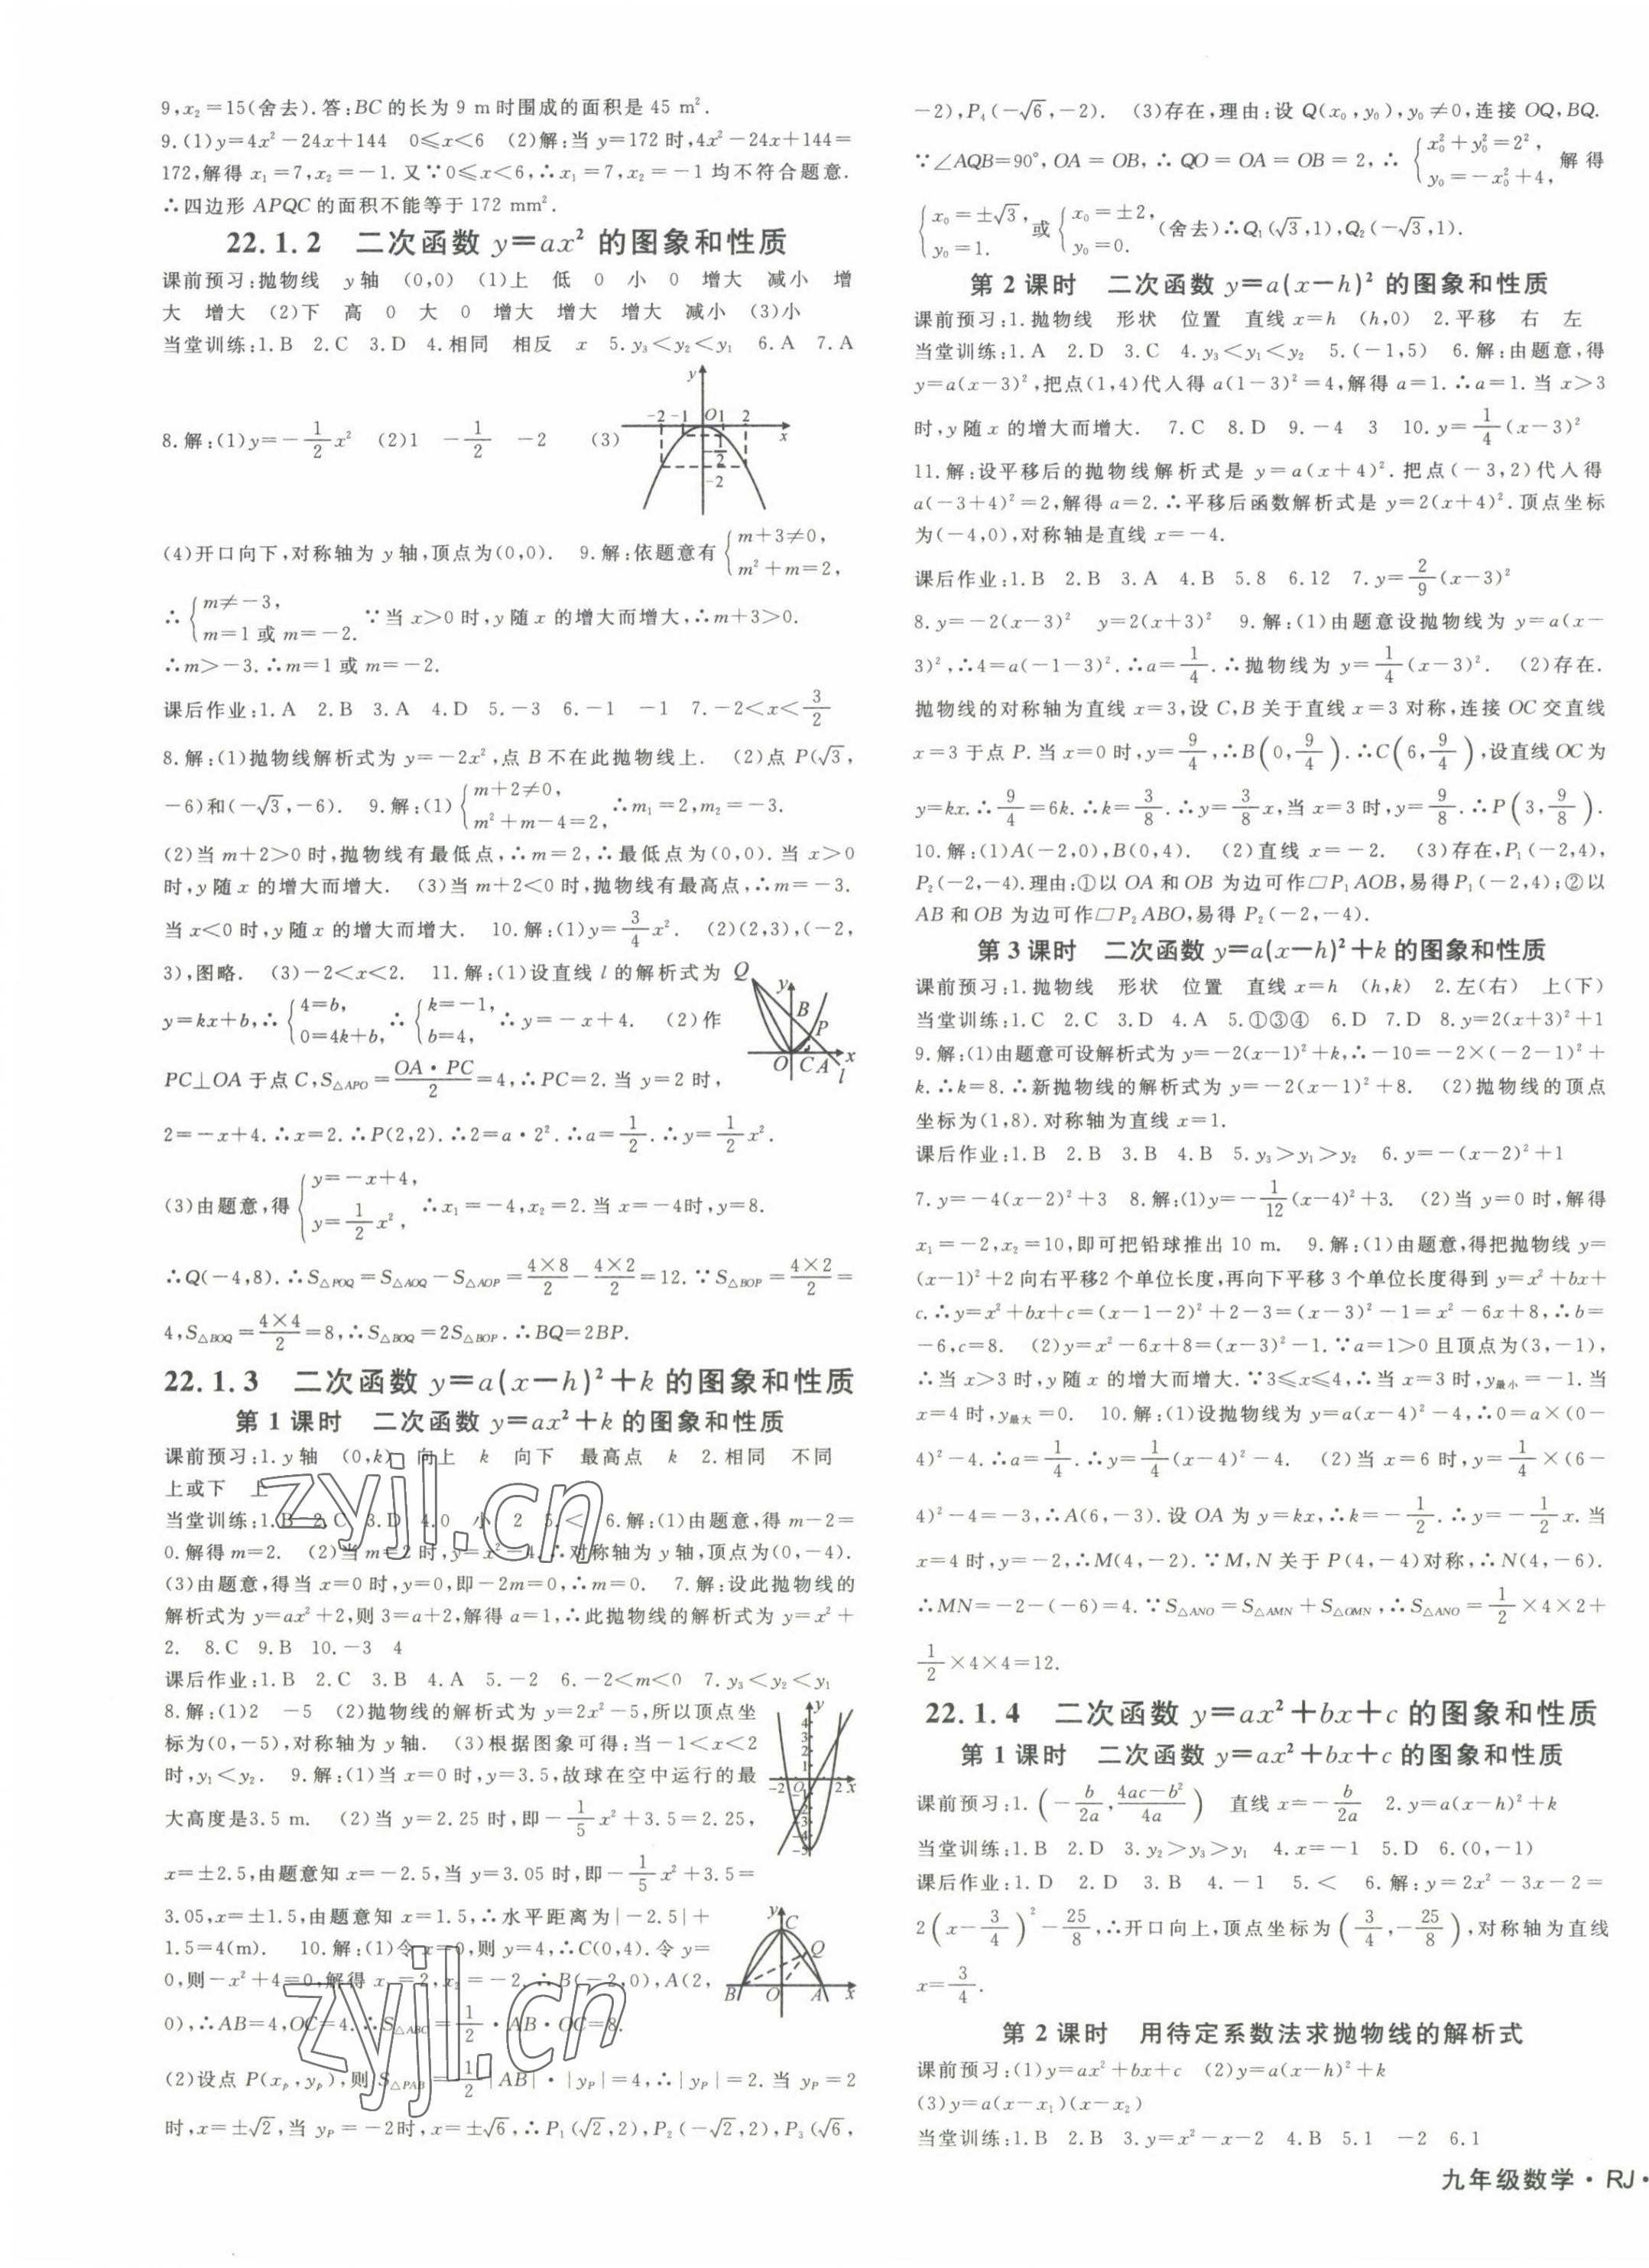 9,x₂=15(舍去).答:BC的长为9 m时围成的面积是45 m².
9.(1)y=4x²-24x+144 0≤x<6 (2)解:当y=172时,4x²-24x+144=
172,解得x₁=7,x₂=-1.又∵0≤x<6,∴x₁=7,x₂=-1均不符合题意.
∴四边形APQC的面积不能等于172 mm².
22.1.2 二次函数y=ax²的图象和性质
课前预习:抛物线 y轴 (0,0) (1)上 低 0 小 0 增大 减小 增
大 增大 (2)下 高 0 大 0 增大 增大 增大 减小 (3)小
当堂训练:1.B 2.C 3.D 4.相同 相反 x 5.y₃<y₂<y₁ 6.A 7.A
8.解:(1)y=-1/2x² (2)1 -1/2 -2 (3)
y -2 -1 O 1 2 x -1/2 -2
(4)开口向下,对称轴为y轴,顶点为(0,0). 9.解:依题意有{m+3≠0, m²+m=2,
∴{m≠-3, m=1或m=-2. ∵当x>0时,y随x的增大而增大,∴m+3>0.
∴m>-3.∴m=1或m=-2.
课后作业:1.A 2.B 3.A 4.D 5.-3 6.-1 -1 7.-2<x<3/2
8.解:(1)抛物线解析式为y=-2x²,点B不在此抛物线上. (2)点P(√3,
-6)和(-√3,-6). 9.解:(1){m+2≠0, m²+m-4=2, ∴m₁=2,m₂=-3.
(2)当m+2>0时,抛物线有最低点,∴m=2,∴最低点为(0,0).当x>0
时,y随x的增大而增大. (3)当m+2<0时,抛物线有最高点,∴m=-3.
当x<0时,y随x的增大而增大. 10.解:(1)y=3/4x². (2)(2,3),(-2,
3),图略. (3)-2<x<2. 11.解:(1)设直线l的解析式为
y=kx+b,∴{4=b, 0=4k+b, ∴{k=-1, b=4, ∴y=-x+4. (2)作
PC⊥OA于点C,S△APO=OA·PC/2=4,∴PC=2.当y=2时,
Q y B P O C A x l
2=-x+4.∴x=2.∴P(2,2).∴2=a·2².∴a=1/2.∴y=1/2x².
(3)由题意,得{y=-x+4, y=1/2x², ∴x₁=-4,x₂=2.当x=-4时,y=8.
∴Q(-4,8).∴S△POQ=S△AOQ-S△AOP=4×8/2-4×2/2=12.∵S△BOP=4×2/2=
4,S△BOQ=4×4/2=8,∴S△BOQ=2S△BOP.∴BQ=2BP.
22.1.3 二次函数y=a(x-h)²+k的图象和性质
第1课时 二次函数y=ax²+k的图象和性质
课前预习:1.y轴 (0,k) 向上 k 向下 最高点 k 2.相同 不同
上或下 上
当堂训练:1.B 2.C 3.D 4.0 小 2 5.< 6.解:(1)由题意,得m-2=
0.解得m=2. (2)当m=2时,y=x²-4,∴对称轴为y轴,顶点为(0,-4).
(3)由题意,得当x=0时,y=0,即-2m=0,∴m=0. 7.解:设此抛物线的
解析式为y=ax²+2,则3=a+2,解得a=1,∴此抛物线的解析式为y=x²+
2. 8.C 9.B 10.-3 4
课后作业:1.B 2.C 3.B 4.A 5.-2 6.-2<m<0 7.y₃<y₂<y₁
8.解:(1)2 -5 (2)抛物线的解析式为y=2x²-5,所以顶点坐
标为(0,-5),对称轴为y轴. (3)根据图象可得:当-1<x<2
时,y₁<y₂. 9.解:(1)当x=0时,y=3.5,故球在空中运行的最
大高度是3.5 m. (2)当y=2.25时,即-1/5x²+3.5=2.25,
y 4 3 2 1 -2 O 2 x -1 -2 -3 -4 -5
x=±2.5,由题意知x=-2.5,当y=3.05时,即-1/5x²+3.5=
3.05,x=±1.5,由题意知x=1.5,∴水平距离为|-2.5|+
1.5=4(m). 10.解:(1)令x=0,则y=4,∴C(0,4).令y=
0,则-x²+4=0,解得x₁=2,x₂=-2,∴B(-2,0),A(2,
0),∴AB=4,OC=4.∴S△ABC=1/2·AB·OC=8.
y C Q B O A x
(2)设点P(xₚ,yₚ),则S△PAB=1/2|AB|·|yP|=4,∴|yP|=2.当yP=2
时,x=±√2,当yP=-2时,x=±√6,∴P₁(√2,2),P₂(-√2,2),P₃(√6,
-2),P₄(-√6,-2). (3)存在,理由:设Q(x₀,y₀),y₀≠0,连接OQ,BQ.
∵∠AQB=90°,OA=OB,∴QO=OA=OB=2,∴{x₀²+y₀²=2², y₀=-x₀²+4, 解得
{x₀=±√3, y₀=1. 或{x₀=±2, y₀=0. (舍去)∴Q₁(√3,1),Q₂(-√3,1).
第2课时 二次函数y=a(x-h)²的图象和性质
课前预习:1.抛物线 形状 位置 直线x=h (h,0) 2.平移 右 左
当堂训练:1.A 2.D 3.C 4.y₃<y₁<y₂ 5.(-1,5) 6.解:由题意,得
y=a(x-3)²,把点(1,4)代入得a(1-3)²=4,解得a=1.∴a=1.当x>3
时,y随x的增大而增大. 7.C 8.D 9.-4 3 10.y=1/4(x-3)²
11.解:设平移后的抛物线解析式是y=a(x+4)².把点(-3,2)代入得
a(-3+4)²=2,解得a=2.∴平移后函数解析式是y=2(x+4)².顶点坐标
为(-4,0),对称轴是直线x=-4.
课后作业:1.B 2.B 3.A 4.B 5.8 6.12 7.y=2/9(x-3)²
8.y=-2(x-3)² y=2(x+3)² 9.解:(1)由题意设抛物线为y=a(x-
3)²,∴4=a(-1-3)².∴a=1/4.∴抛物线为y=1/4(x-3)². (2)存在.
抛物线的对称轴为直线x=3,设C,B关于直线x=3对称,连接OC交直线
x=3于点P.当x=0时,y=9/4,∴B(0,9/4).∴C(6,9/4),设直线OC为
y=kx.∴9/4=6k.∴k=3/8.∴y=3/8x,当x=3时,y=9/8.∴P(3,9/8).
10.解:(1)A(-2,0),B(0,4). (2)直线x=-2. (3)存在,P₁(-2,4),
P₂(-2,-4).理由:①以OA和OB为边可作▱P₁AOB,易得P₁(-2,4);②以
AB和OB为边可作▱P₂ABO,易得P₂(-2,-4).
第3课时 二次函数y=a(x-h)²+k的图象和性质
课前预习:1.抛物线 形状 位置 直线x=h (h,k) 2.左(右) 上(下)
当堂训练:1.C 2.C 3.D 4.A 5.①③④ 6.D 7.D 8.y=2(x+3)²+1
9.解:(1)由题意可设解析式为y=-2(x-1)²+k,∴-10=-2×(-2-1)²+
k.∴k=8.∴新抛物线的解析式为y=-2(x-1)²+8. (2)抛物线的顶点
坐标为(1,8).对称轴为直线x=1.
课后作业:1.B 2.B 3.B 4.B 5.y₃>y₁>y₂ 6.y=-(x-2)²+1
7.y=-4(x-2)²+3 8.解:(1)y=-1/12(x-4)²+3. (2)当y=0时,解得
x₁=-2,x₂=10,即可把铅球推出10 m. 9.解:(1)由题意,得把抛物线y=
(x-1)²+2向右平移2个单位长度,再向下平移3个单位长度得到y=x²+bx+
c.∴y=x²+bx+c=(x-1-2)²+2-3=(x-3)²-1=x²-6x+8,∴b=
-6,c=8. (2)y=x²-6x+8=(x-3)²-1.∵a=1>0且顶点为(3,-1),
∴当x>3时,y随x的增大而增大.∵3≤x≤4,∴当x=3时,y最小=-1.当
x=4时,y最大=0. 10.解:(1)设抛物线为y=a(x-4)²-4,∴0=a×(0-
4)²-4.∴a=1/4.∴y=1/4(x-4)²-4. (2)当x=6时,y=1/4×(6-
4)²-4=-3,∴A(6,-3).设OA为y=kx,∴k=-1/2.∴y=-1/2x.当
x=4时,y=-2,∴M(4,-2).∵M,N关于P(4,-4)对称,∴N(4,-6).
∴MN=-2-(-6)=4.∵S△ANO=S△AMN+S△OMN,∴S△ANO=1/2×4×2+
1/2×4×4=12.
22.1.4 二次函数y=ax²+bx+c的图象和性质
第1课时 二次函数y=ax²+bx+c的图象和性质
课前预习:1.(-b/2a,4ac-b²/4a) 直线x=-b/2a 2.y=a(x-h)²+k
当堂训练:1.B 2.D 3.y₂>y₃>y₁ 4.x=-1 5.D 6.(0,-1)
课后作业:1.D 2.D 3.B 4.-1 5.< 6.解:y=2x²-3x-2=
2(x-3/4)²-25/8,∴开口向上,顶点坐标为(3/4,-25/8),对称轴为直线
x=3/4.
第2课时 用待定系数法求抛物线的解析式
课前预习:(1)y=ax²+bx+c (2)y=a(x-h)²+k
(3)y=a(x-x₁)(x-x₂)
当堂训练:1.B 2.B 3.y=x²-x-2 4.B 5.1 -2 6.1
九年级数学·RJ·
zyjl.cn
zyjl.cn